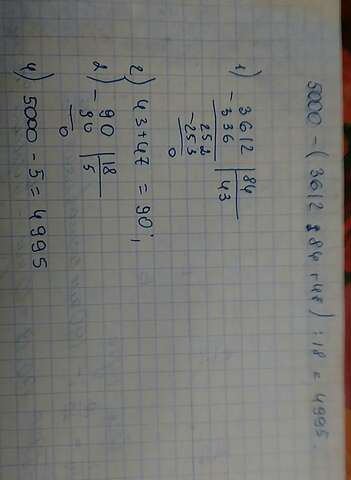 5000 - (3612 : 84 + 47) : 18 = 4995.
1) - 3612 | 84
336 | 43
252
- 253
0
2) 43 + 47 = 90;
2) - 90 | 18
90 | 5
0
4) 5000 - 5 = 4995